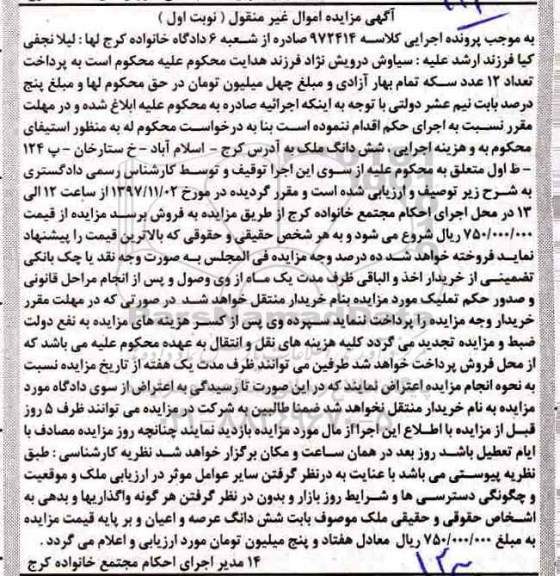 آگهی مزایده اموال غیر منقول ( نوبت اول )
به موجب پرونده اجرایی کلاسه ۹۷۲۴۱۴ صادره از شعبه ۶ دادگاه خانواده کرج لها : لیلا نجفی
کیا فرزند ارشد علیه : سیاوش درویش نژاد فرزند هدایت محکوم علیه محکوم است به پرداخت
تعداد ۱۲ عدد سکه تمام بهار آزادی و مبلغ چهل میلیون تومان در حق محکوم لها و مبلغ پنج
درصد بابت نیم عشر دولتی با توجه به اینکه اجرائیه صادره به محکوم علیه ابلاغ شده و در مهلت
مقرر نسبت به اجرای حکم اقدام ننموده است بنا به درخواست محکوم له به منظور استیفای
محکوم به و هزینه اجرایی ، شش دانگ ملک به آدرس کرج - اسلام آباد - خ ستارخان - پ ۱۲۴
- ط اول متعلق به محکوم علیه از سوی این اجرا توقیف و توسط کارشناس رسمی دادگستری
به شرح زیر توصیف و ارزیابی شده است و مقرر گردیده در مورخ ۱۳۹۷/۱۱/۰۲ از ساعت ۱۲ الی
۱۳ در محل اجرای احکام مجتمع خانواده کرج از طریق مزایده به فروش برسد مزایده از قیمت
۷۵۰/۰۰۰/۰۰۰ ریال شروع می شود و به هر شخص حقیقی و حقوقی که بالاترین قیمت را پیشنهاد
نماید فروخته خواهد شد ده درصد وجه مزایده فی المجلس به صورت وجه نقد یا چک بانکی
تضمینی از خریدار اخذ و الباقی ظرف مدت یک ماه از وی وصول و پس از انجام مراحل قانونی
و صدور حکم تملیک مورد مزایده بنام خریدار منتقل خواهد شد در صورتی که در مهلت مقرر
خریدار وجه مزایده را پرداخت ننماید سپرده وی پس از کسر هزینه های مزایده به نفع دولت
ضبط و مزایده تجدید می گردد کلیه هزینه های نقل و انتقال به عهده محکوم علیه می باشد که
از محل فروش پرداخت خواهد شد طرفین می توانند ظرف مدت یک هفته از تاریخ مزایده نسبت
به نحوه انجام مزایده اعتراض نمایند که در این صورت تا رسیدگی به اعتراض از سوی دادگاه مورد
مزایده به نام خریدار منتقل نخواهد شد ضمنا طالبین به شرکت در مزایده می توانند ظرف ۵ روز
قبل از مزایده با اطلاع این اجرا از مال مورد مزایده بازدید نمایند چنانچه روز مزایده مصادف با
ایام تعطیل باشد روز بعد در همان ساعت و مکان برگزار خواهد شد نظریه کارشناسی : طبق
نظریه پیوستی می باشد با عنایت به درنظر گرفتن سایر عوامل موثر در ارزیابی ملک و موقعیت
و چگونگی دسترسی ها و شرایط روز بازار و بدون در نظر گرفتن هر گونه واگذاریها و بدهی به
اشخاص حقوقی و حقیقی ملک موصوف بابت شش دانگ عرصه و اعیان و بر پایه قیمت مزایده
به مبلغ ۷۵۰/۰۰۰/۰۰۰ ریال معادل هفتاد و پنج میلیون تومان مورد ارزیابی و اعلام می گردد .
۱۴ مدیر اجرای احکام مجتمع خانواده کرج